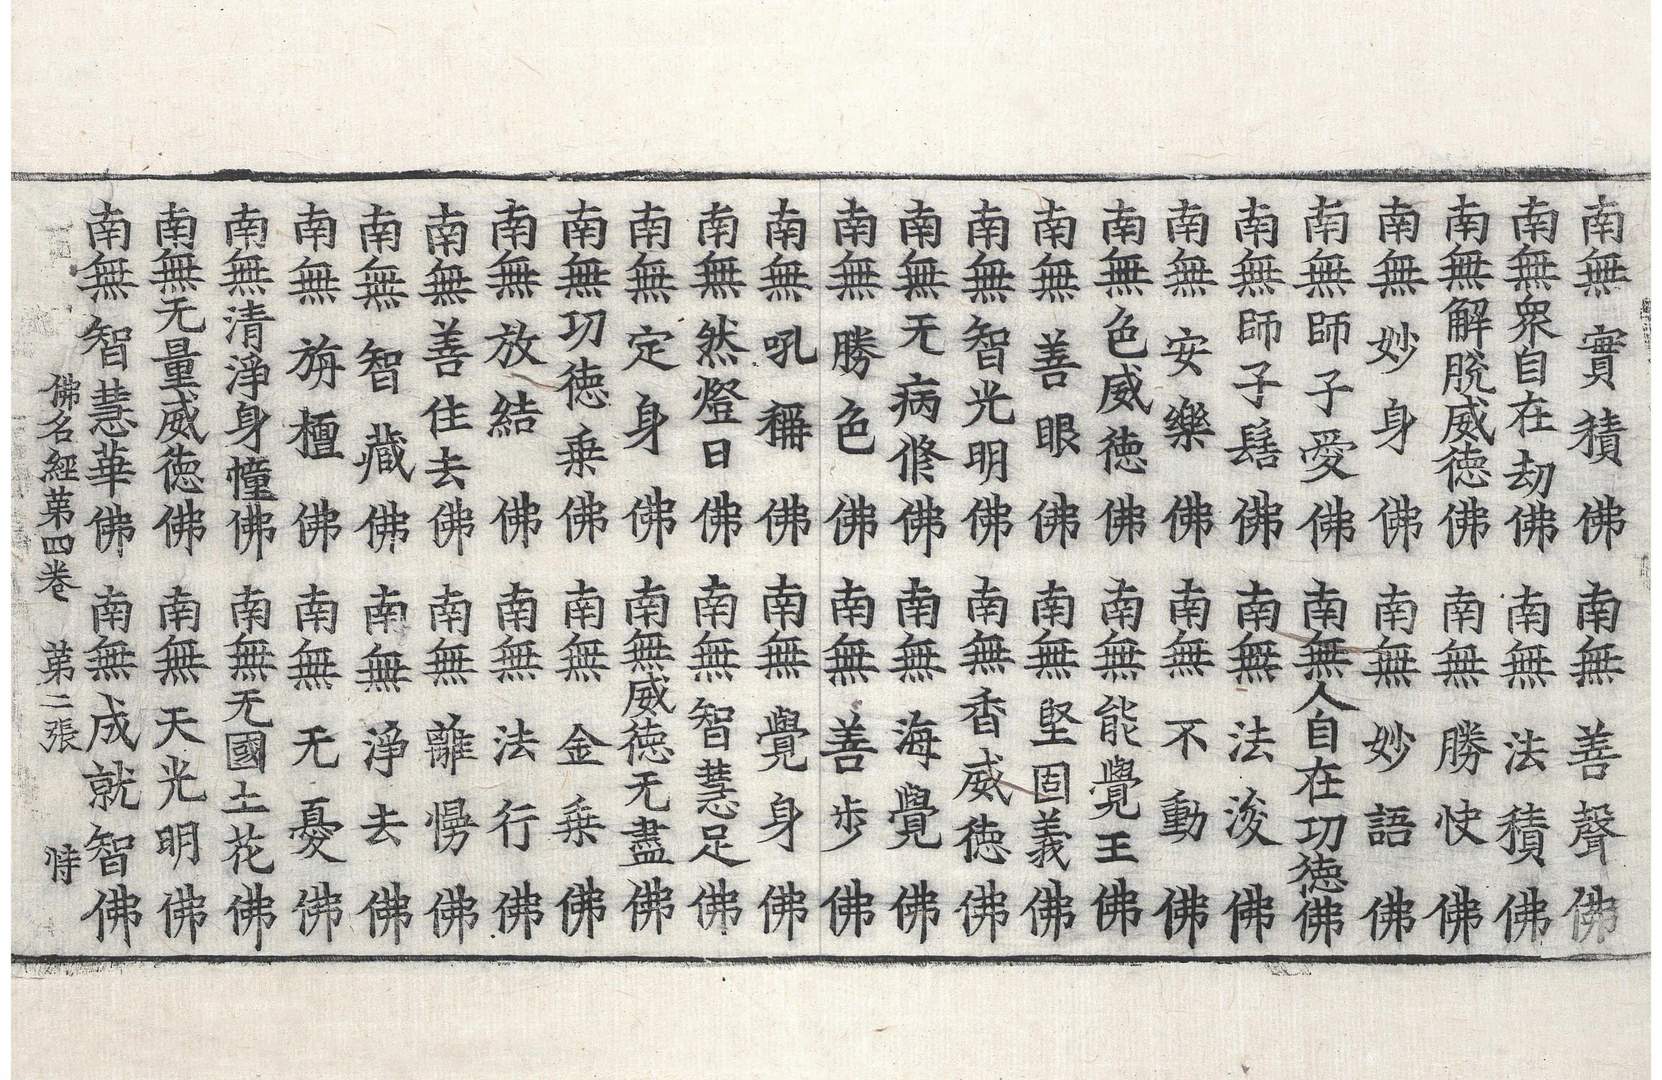 南無實積佛 南無善聲佛
南無衆自在劫佛 南無法積佛
南無解脫威德佛 南無勝快佛
南無妙身佛 南無妙語佛
南無師子愛佛 南無人自在功德佛
南無師子髻佛 南無法浚佛
南無安樂佛 南無不動佛
南無色威德佛 南無能覺王佛
南無善眼佛 南無堅固義佛
南無智光明佛 南無香威德佛
南無无病脩佛 南無海覺佛
南無勝色佛 南無善步佛
南無吼稱佛 南無覺身佛
南無然燈日佛 南無智慧足佛
南無定身佛 南無威德无盡佛
南無功德乗佛 南無金乗佛
南無放結佛 南無法行佛
南無善住去佛 南無離慢佛
南無智藏佛 南無淨去佛
南無旃檀佛 南無无憂佛
南無清淨身幢佛 南無无國土花佛
南無无量威德佛 南無天光明佛
南無智慧華佛 南無成就智佛
佛名經苐四卷 苐二張 恃